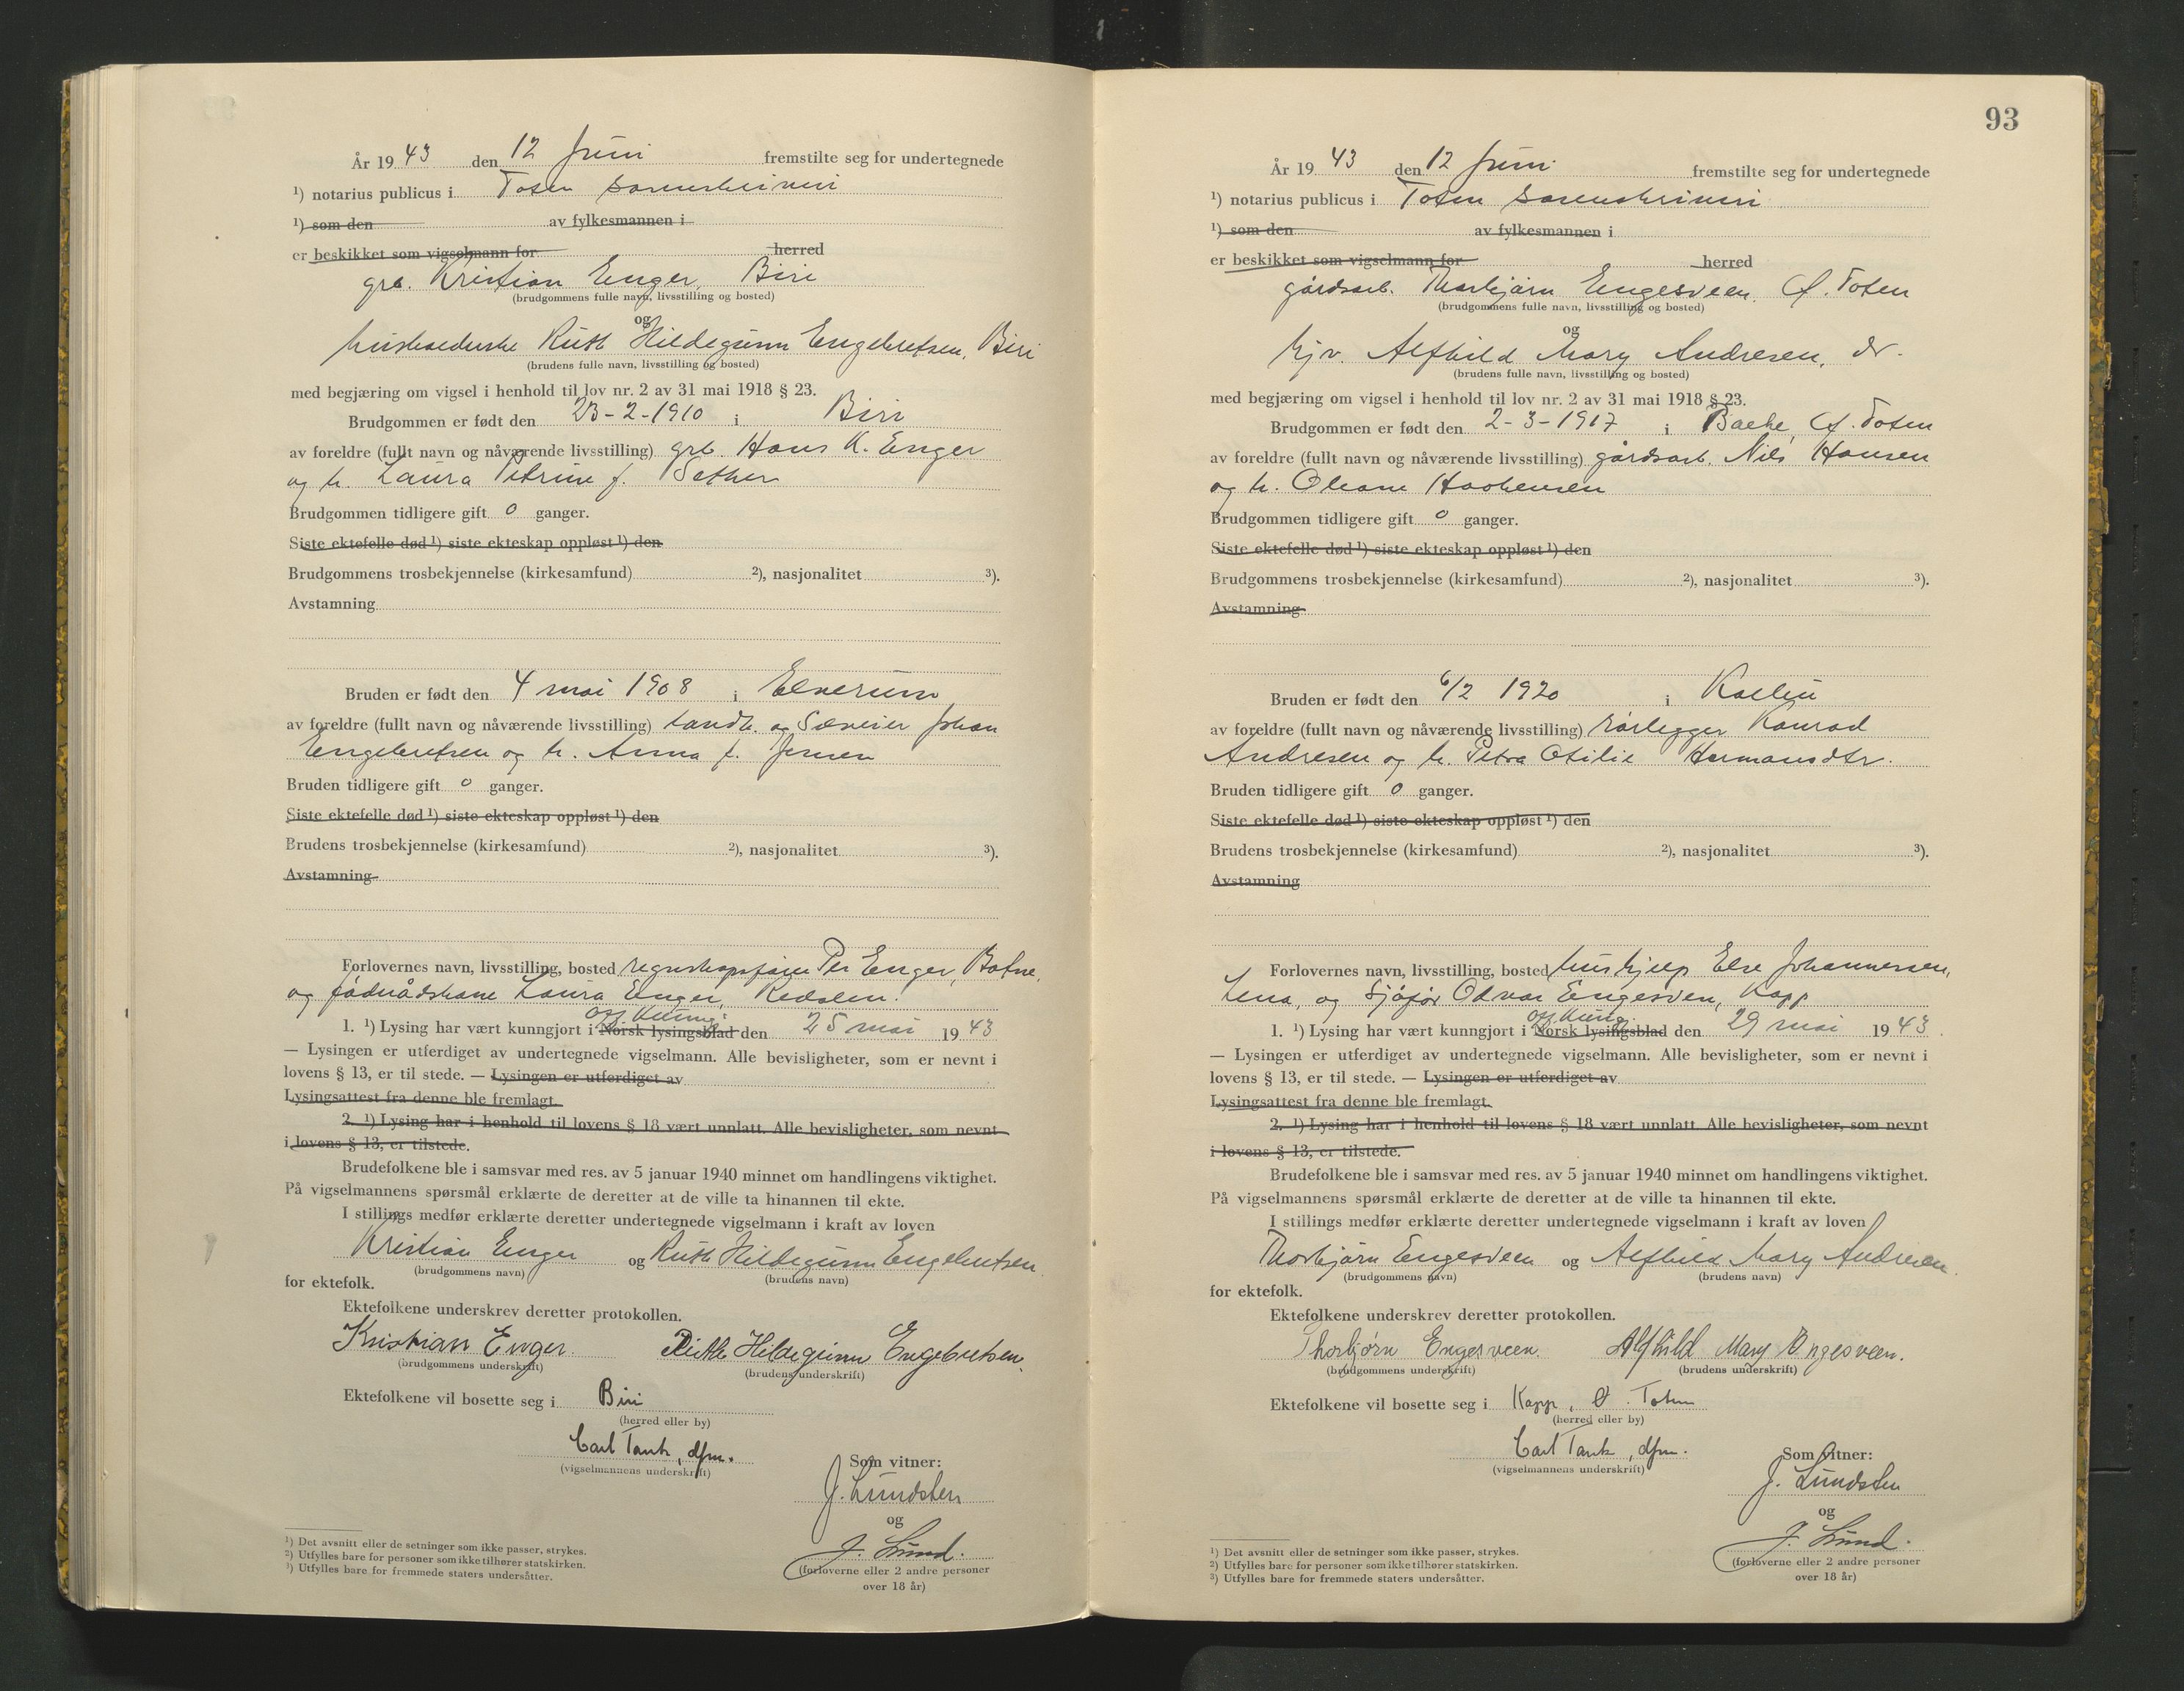 År 19 43 den 12 Juni fremstilte seg for undertegnede
¹) notarius publicus i Toten sorenskriveri
¹) som den av fylkesmannen i
er beskikket som vigselmann for herred
grb. Kristian Enger, Biri
(brudgommens fulle navn, livsstilling og bosted)
og
Ruth Hildegunn Engebretsen, Biri
(brudens fulle navn, livsstilling og bosted)
med begjæring om vigsel i henhold til lov nr. 2 av 31 mai 1918 § 23.
Brudgommen er født den 23-2-1910 i Biri
av foreldre (fullt navn og nåværende livsstilling) grb. Hans K. Enger
og h. Laura Petrine f. Sether
Brudgommen tidligere gift 0 ganger.
Siste ektefelle død ¹) siste ekteskap oppløst ¹) den
Brudgommens trosbekjennelse (kirkesamfund) ²), nasjonalitet ³).
Avstamning
Bruden er født den 4 mai 1908 i Elverum
av foreldre (fullt navn og nåværende livsstilling) landh. og Johan
Engebretsen og h. Anna f. Jensen
Bruden tidligere gift 0 ganger.
Siste ektefelle død ¹) siste ekteskap oppløst ¹) den
Brudens trosbekjennelse (kirkesamfund) ²), nasjonalitet ³).
Avstamning
Forlovernes navn, livsstilling, bosted Per Enger,
og Laura Enger, Redalen.
off. kunng.
1. ¹) Lysing har vært kunngjort i Norsk lysingsblad den 25 mai 19 43
— Lysingen er utferdiget av undertegnede vigselmann. Alle bevisligheter, som er nevnt i
lovens § 13, er til stede. — Lysingen er utferdiget av
Lysingsattest fra denne ble fremlagt.
2. ¹) Lysing har i henhold til lovens § 18 vært unnlatt. Alle bevisligheter, som nevnt
i lovens § 13, er tilstede.
Brudefolkene ble i samsvar med res. av 5 januar 1940 minnet om handlingens viktighet.
På vigselmannens spørsmål erklærte de deretter at de ville ta hinannen til ekte.
I stillings medfør erklærte deretter undertegnede vigselmann i kraft av loven
Kristian Enger og Ruth Hildegunn Engebretsen
(brudgommens navn) (brudens navn)
for ektefolk.
Ektefolkene underskrev deretter protokollen.
Kristian Enger Ruth Hildegunn Engebretsen.
(brudgommens underskrift) (brudens underskrift)
Ektefolkene vil bosette seg i Biri
(herred eller by)
Carl Tank, dfm.
(vigselmannens underskrift)
Som vitner:
J. Lundsten
og
J. Lund.
(forloverne eller 2 andre personer
over 18 år)
¹) Det avsnitt eller de setninger som ikke passer, strykes.
²) Utfylles bare for personer som ikke tilhører statskirken.
³) Utfylles bare for fremmede staters undersåtter.
93
År 19 43 den 12 Juni fremstilte seg for undertegnede
¹) notarius publicus i Toten sorenskriveri
¹) som den av fylkesmannen i
er beskikket som vigselmann for herred
gårdsarb. Thorbjørn Engesveen, Ø. Toten
(brudgommens fulle navn, livsstilling og bosted)
og
hjv. Alfhild Mary Andresen, ds.
(brudens fulle navn, livsstilling og bosted)
med begjæring om vigsel i henhold til lov nr. 2 av 31 mai 1918 § 23.
Brudgommen er født den 2-3-1917 i Ø. Toten
av foreldre (fullt navn og nåværende livsstilling) gårdsarb. Nils Hansen
og h. Oleane Haakensen
Brudgommen tidligere gift 0 ganger.
Siste ektefelle død ¹) siste ekteskap oppløst ¹) den
Brudgommens trosbekjennelse (kirkesamfund) ²), nasjonalitet ³).
Avstamning
Bruden er født den 6/2 1920 i Kolbu
av foreldre (fullt navn og nåværende livsstilling) rørlegger Konrad
Andresen og h. Petra Otilie Hermansdtr.
Bruden tidligere gift 0 ganger.
Siste ektefelle død ¹) siste ekteskap oppløst ¹) den
Brudens trosbekjennelse (kirkesamfund) ²), nasjonalitet ³).
Avstamning
Forlovernes navn, livsstilling, bosted hushjelp Else Johannessen,
Lena, og sjåfør Odvar Engesveen, Kapp
off. kunng.
1. ¹) Lysing har vært kunngjort i Norsk lysingsblad den 29 mai 19 43.
— Lysingen er utferdiget av undertegnede vigselmann. Alle bevisligheter, som er nevnt i
lovens § 13, er til stede. — Lysingen er utferdiget av
Lysingsattest fra denne ble fremlagt.
2. ¹) Lysing har i henhold til lovens § 18 vært unnlatt. Alle bevisligheter, som nevnt
i lovens § 13, er tilstede.
Brudefolkene ble i samsvar med res. av 5 januar 1940 minnet om handlingens viktighet.
På vigselmannens spørsmål erklærte de deretter at de ville ta hinannen til ekte.
I stillings medfør erklærte deretter undertegnede vigselmann i kraft av loven
Thorbjørn Engesveen og Alfhild Mary Andresen
(brudgommens navn) (brudens navn)
for ektefolk.
Ektefolkene underskrev deretter protokollen.
Thorbjørn Engesveen. Alfhild Mary Engesveen.
(brudgommens underskrift) (brudens underskrift)
Ektefolkene vil bosette seg i Kapp, Ø. Toten
(herred eller by)
Carl Tank, dfm.
(vigselmannens underskrift)
Som vitner:
J. Lundsten
og
J. Lund.
(forloverne eller 2 andre personer
over 18 år)
¹) Det avsnitt eller de setninger som ikke passer, strykes.
²) Utfylles bare for personer som ikke tilhører statskirken.
³) Utfylles bare for fremmede staters undersåtter.